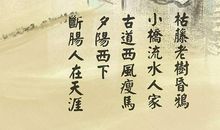 枯藤老樹昏鴉
小橋流水人家
古道西風瘦馬
夕陽西下
斷腸人在天涯